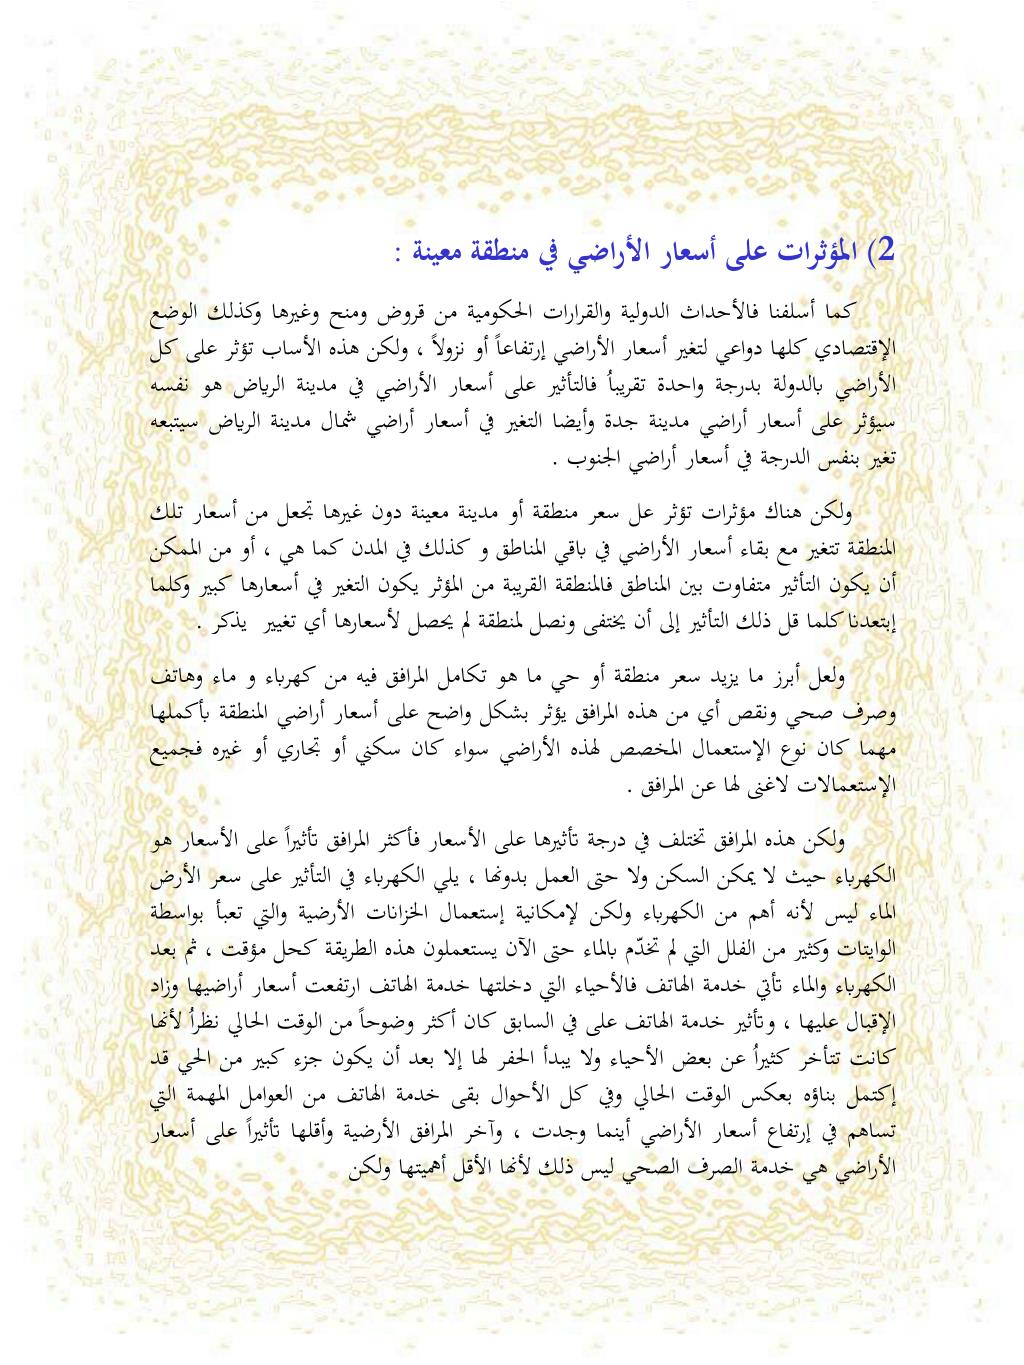 2) المؤثرات على أسعار الأراضي في منطقة معينة :
كما أسلفنا فالأحداث الدولية والقرارات الحكومية من قروض ومنح وغيرها وكذلك الوضع
الإقتصادي كلها دواعي لتغير أسعار الأراضي إرتفاعاً أو نزولاً ، ولكن هذه الأساب تؤثر على كل
الأراضي بالدولة بدرجة واحدة تقريباُ فالتأثير على أسعار الأراضي في مدينة الرياض هو نفسه
سيؤثر على أسعار أراضي مدينة جدة وأيضا التغير في أسعار أراضي شمال مدينة الرياض سيتبعه
تغير بنفس الدرجة في أسعار أراضي الجنوب .
ولكن هناك مؤثرات تؤثر عل سعر منطقة أو مدينة معينة دون غيرها تجعل من أسعار تلك
المنطقة تتغير مع بقاء أسعار الأراضي في باقي المناطق و كذلك في المدن كما هي ، أو من الممكن
أن يكون التأثير متفاوت بين المناطق فالمنطقة القريبة من المؤثر يكون التغير في أسعارها كبير وكلما
إبتعدنا كلما قل ذلك التأثير إلى أن يختفى ونصل لمنطقة لم يحصل لأسعارها أي تغيير يذكر .
ولعل أبرز ما يزيد سعر منطقة أو حي ما هو تكامل المرافق فيه من كهرباء و ماء وهاتف
وصرف صحي ونقص أي من هذه المرافق يؤثر بشكل واضح على أسعار أراضي المنطقة بأكملها
مهما كان نوع الإستعمال المخصص لهذه الأراضي سواء كان سكني أو تجاري أو غيره فجميع
الإستعمالات لاغنى لها عن المرافق .
ولكن هذه المرافق تختلف في درجة تأثيرها على الأسعار فأكثر المرافق تأثيراً على الأسعار هو
الكهرباء حيث لا يمكن السكن ولا حتى العمل بدونها ، يلي الكهرباء في التأثير على سعر الأرض
الماء ليس لأنه أهم من الكهرباء ولكن لإمكانية إستعمال الخزانات الأرضية والتي تعبأ بواسطة
الوايتات وكثير من الفلل التي لم تخدّم بالماء حتى الآن يستعملون هذه الطريقة كحل مؤقت ، ثم بعد
الكهرباء والماء تأتي خدمة الهاتف فالأحياء التي دخلتها خدمة الهاتف ارتفعت أسعار أراضيها وزاد
الإقبال عليها ، وتأثير خدمة الهاتف على في السابق كان أكثر وضوحاً من الوقت الحالي نظراُ لأنها
كانت تتأخر كثيراُ عن بعض الأحياء ولا يبدأ الحفر لها إلا بعد أن يكون جزء كبير من الحي قد
إكتمل بناؤه بعكس الوقت الحالي وفي كل الأحوال بقى خدمة الهاتف من العوامل المهمة التي
تساهم في إرتفاع أسعار الأراضي أينما وجدت ، وآخر المرافق الأرضية وأقلها تأثيراً على أسعار
الأراضي هي خدمة الصرف الصحي ليس ذلك لأنها الأقل أهميتها ولكن